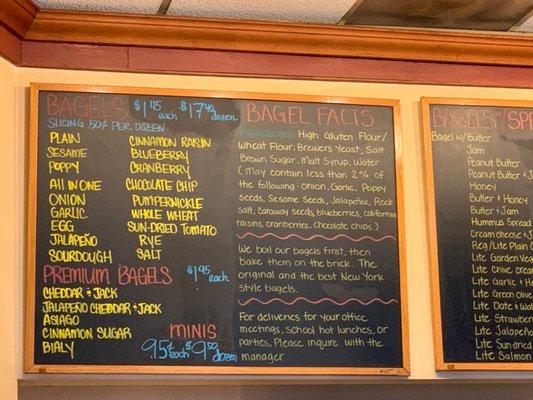 BAGELS $1.45 each $17.40 dozen
SLICING 50¢ PER DOZEN
PLAIN
SESAME
POPPY
ALL IN ONE
ONION
GARLIC
EGG
JALAPEÑO
SOURDOUGH
CINNAMON RAISIN
BLUEBERRY
CRANBERRY
CHOCOLATE CHIP
PUMPERNICKLE
WHOLE WHEAT
SUN-DRIED TOMATO
RYE
SALT
PREMIUM BAGELS $1.95 each
CHEDDAR & JACK
JALAPEÑO CHEDDAR & JACK
ASIAGO
CINNAMON SUGAR
BIALY
MINIS
95¢ each $9.50 dozen
BAGEL FACTS
Ingredients: High Gluten Flour/
Wheat Flour, Brewers Yeast, Salt
Brown Sugar, Malt Syrup, Water
(May contain less than 2% of
the following: Onion, Garlic, Poppy
seeds, Sesame Seeds, Jalapeños, Rock
salt, Caraway seeds, blueberries, California
raisins, cranberries, chocolate chips)
We boil our bagels first, then
bake them on the brick. The
original and the best New York
style bagels.
For deliveries for your office
meetings, school hot lunches, or
parties, Please inquire with the
manager.
BAGELS SPR
Bagel w/ Butter
Jam
Peanut Butter
Peanut Butter &
Honey
Butter & Honey
Butter & Jam
Hummus Spread
Cream cheese & J
Reg/Lite Plain C
Lite Garden Veg
Lite Chive Crea
Lite Garlic & He
Lite Green Olive
Lite Date & Wal
Lite Strawberr
Lite Jalapeño
Lite Sun-dried
Lite Salmon